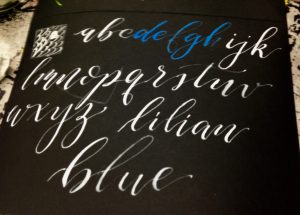 abcdefghijk
lmnopqrstuv
wxyz lilian
blue